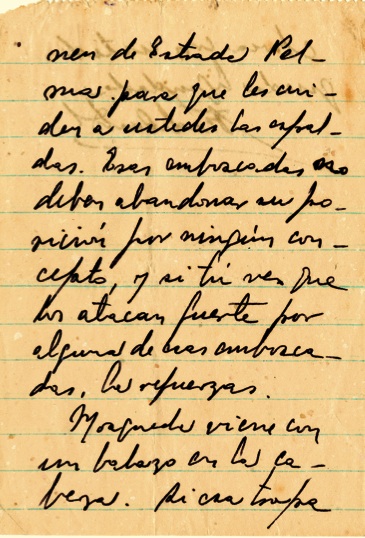 nen de Estrada Pal-
ma para que les cui-
den a ustedes las espal-
das. Esas emboscadas no
deben abandonar su po-
sición por ningún con-
cepto, y si tú ves que
los atacan fuerte por
alguna de esas embosca-
das, la refuerzas.
Mosqueda viene con
un balazo en la ca-
beza. Si esa tropa